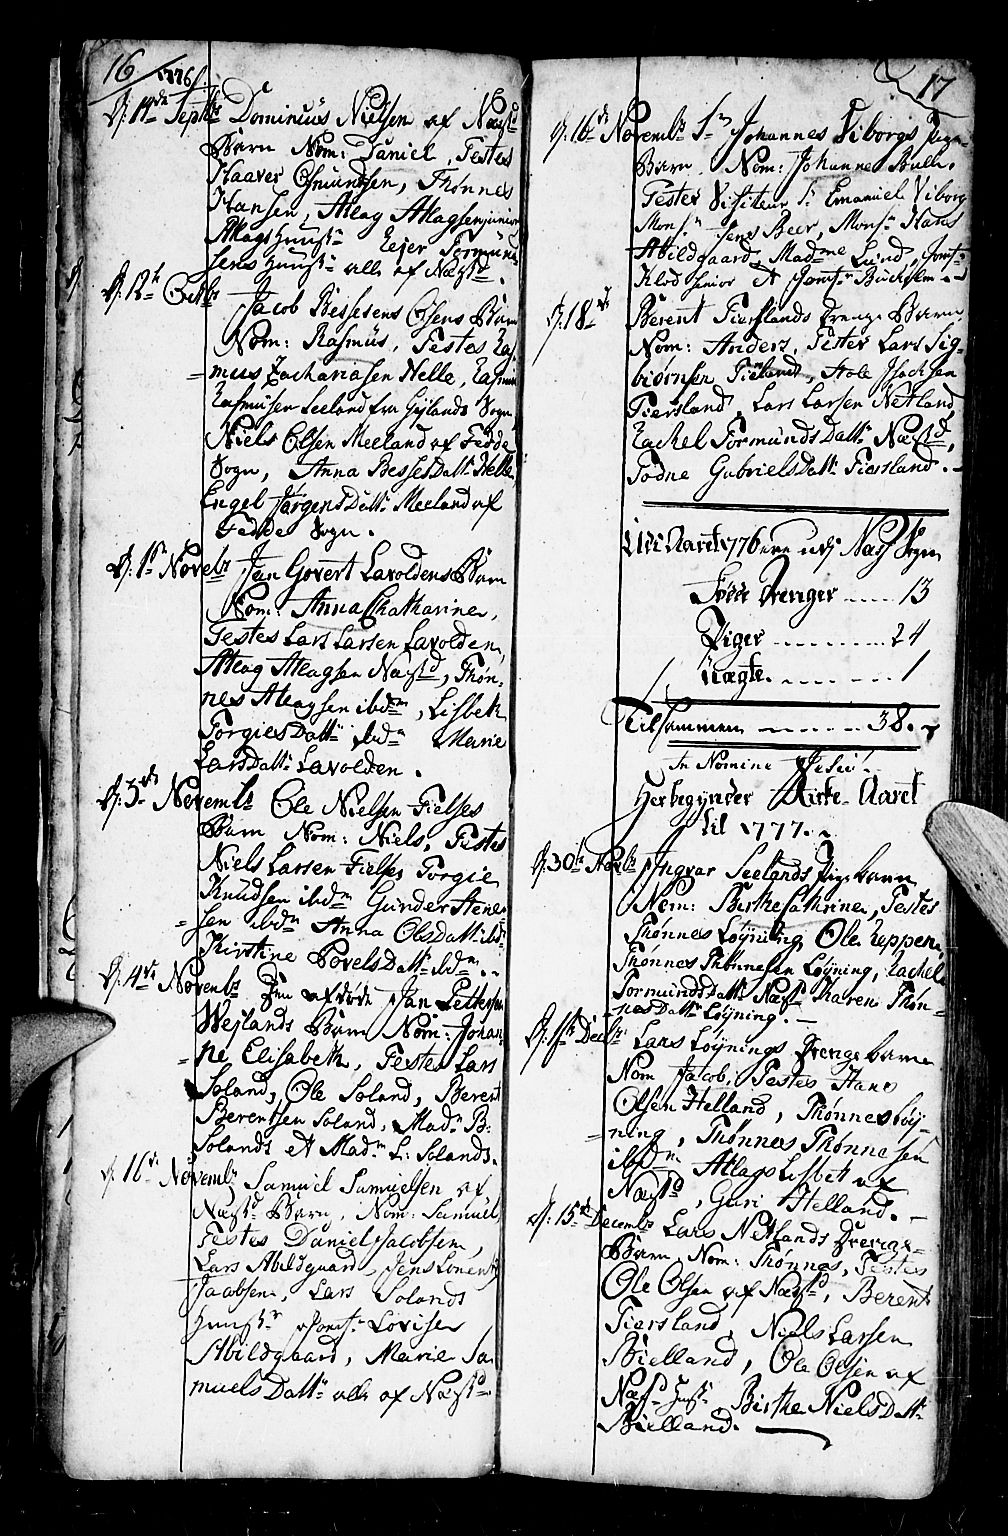 16
1776.
D. 14de Septbr Dominicus Nielsen af Næstd
Barn Nom: Daniel, Testes
Haaver Osmundsen, Thønnes
Hansen, Atlag Atlagsen junior
Atlags Hustr Rejer Tormunds
sens Hustr alle af Næstd.
D. 12te Octbr Jacob Bessesens Olsens Barn
Nom: Rasmus, Testes Ras
mus Zachariasen Helle, Rasmus
Rasmusen Leeland fra Gyland Sogn,
Niels Olsen Meeland af Fedde
Sogn, Anna Besses Datt: Helle
Engel Jørgens Datt: Meeland af
Fedde Sogn.
D. 1ste Novebr Jan Govert Lavoldens Barn
Nom: Anna Chatharine,
Testes Lars Larsen Lavolden,
Atlag Atlagsen Næstd, Thøn-
nes Atlagsen ibdm, Lisbeth
Torgies Datt: ibdm Marie
Lars Datt: Lavolden.
D. 3de Novembr Ole Nielsen Fielses
Barn Nom: Niels, Testes
Niels Larsen Fielse, Torgie
Knudsen ibdm Gunder Stene-
=sen ibdm Anna Ols Datt: ibdm
Kirstine Povels Datt: ibdm.
D. 4de Novembr Den afdøde Jan Pettersen
Wejlands Barn Nom: Johan-
=ne Elisabeth, Testes Lars
Soland, Ole Soland, Berent
Berentsen Soland, Madm B:
Solands et Madm L: Solands.
D. 16de Novembr Samuel Samuelsen af
Næstd Barn, Nom: Samuel
Testes Daniel Jacobsen,
Lars Abildgaard, Jens Lorentz
Jacobsen, Lars Solands
Hustr Jomfr: Lovise
Abildgaard, Marie Sa
muels Datt: alle af Næstd.
17
D. 16de Novembr Sr Johannes Viborgs Pige-
Barn Nom: Johanne
Testes Visiteur Sr Emanuel Viborg
Monsr Jens Beer, Monsr Hans
Abildgaard, Madme Lund, Jomfr
Klod senior et Jomfr Buchholm.
D. 18de Berent Fierslands Drenge Barn
Nom: Anders, Testes Lars Sig-
biørnsen Fieland, Aole Isachsen
Fiersland, Lars Larsen Netland
Rachel Tormunds Datt: Næstd,
Todne Gabriels Datt: Fiersland.
Udi Aaret 1776 ere udj Næss Sogn
Føde Drenger ..... 13
Piger ......... 24
Uægte. ....... 1
Tilsammen ...... 38.
In Nomine Jesu.
Her begynder Kirke-Aaret
til 1777.
D. 30te Novbr Ingvar Seelands Pigebarn
Nom: Birthe Cathrine, Testes
Thønnes Løyning, Ole Reppen,
Thønnes Thønnesen Løyning, Rachel
Tormunds Datt: Næstd Karen Thøn-
=nes Datt: Løyning.
Decbr: Lars Løynings Drengebarn
Nom Jacob, Testes Hans
Olsen Helland, Thønnes Løy-
=ning, Thønnes Thønnesen
ibdm Atlags Lisbet af
Næstd, Guri Helland.
D. 15de Decembr Lars Netlands Drenge-
Barn Nom: Thønnes, Testes
Ole Olsen af Næstd, Berent
Fiersland, Niels Larsen
Bielland, Ole Olsen af
Næstd Hustr: Birthe Niels Datt:
Bielland.